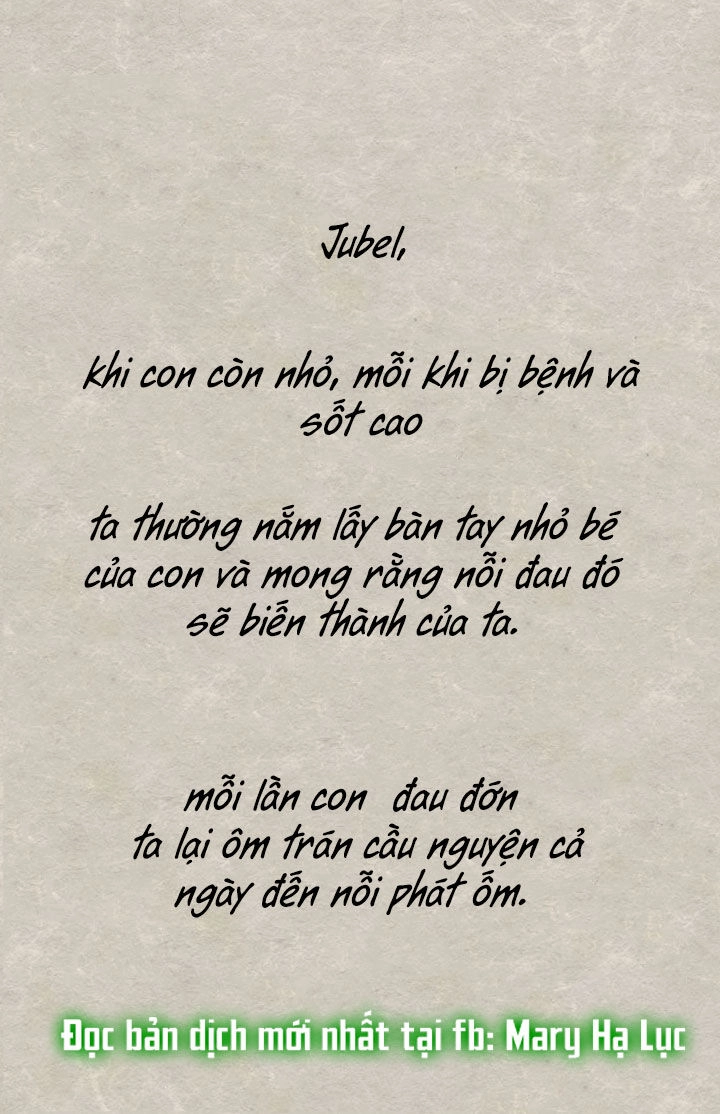 Jubel,
khi con còn nhỏ, mỗi khi bị bệnh và
sốt cao
ta thường nắm lấy bàn tay nhỏ bé
của con và mong rằng nỗi đau đó
sẽ biến thành của ta.
mỗi lần con đau đớn
ta lại ôm trán cầu nguyện cả
ngày đến nỗi phát ốm.
Đọc bản dịch mới nhất tại fb: Mary Hạ Lục